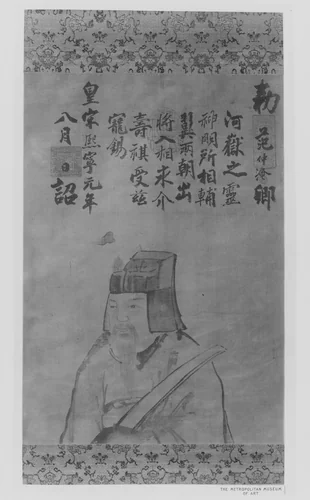 勅范仲淹卿
河嶽之靈
神明所相輔
翼兩朝出
將入相介
壽祺受茲
寵錫
皇宋熙寧元年
八月日詔
THE METROPOLITAN MUSEUM
OF ART